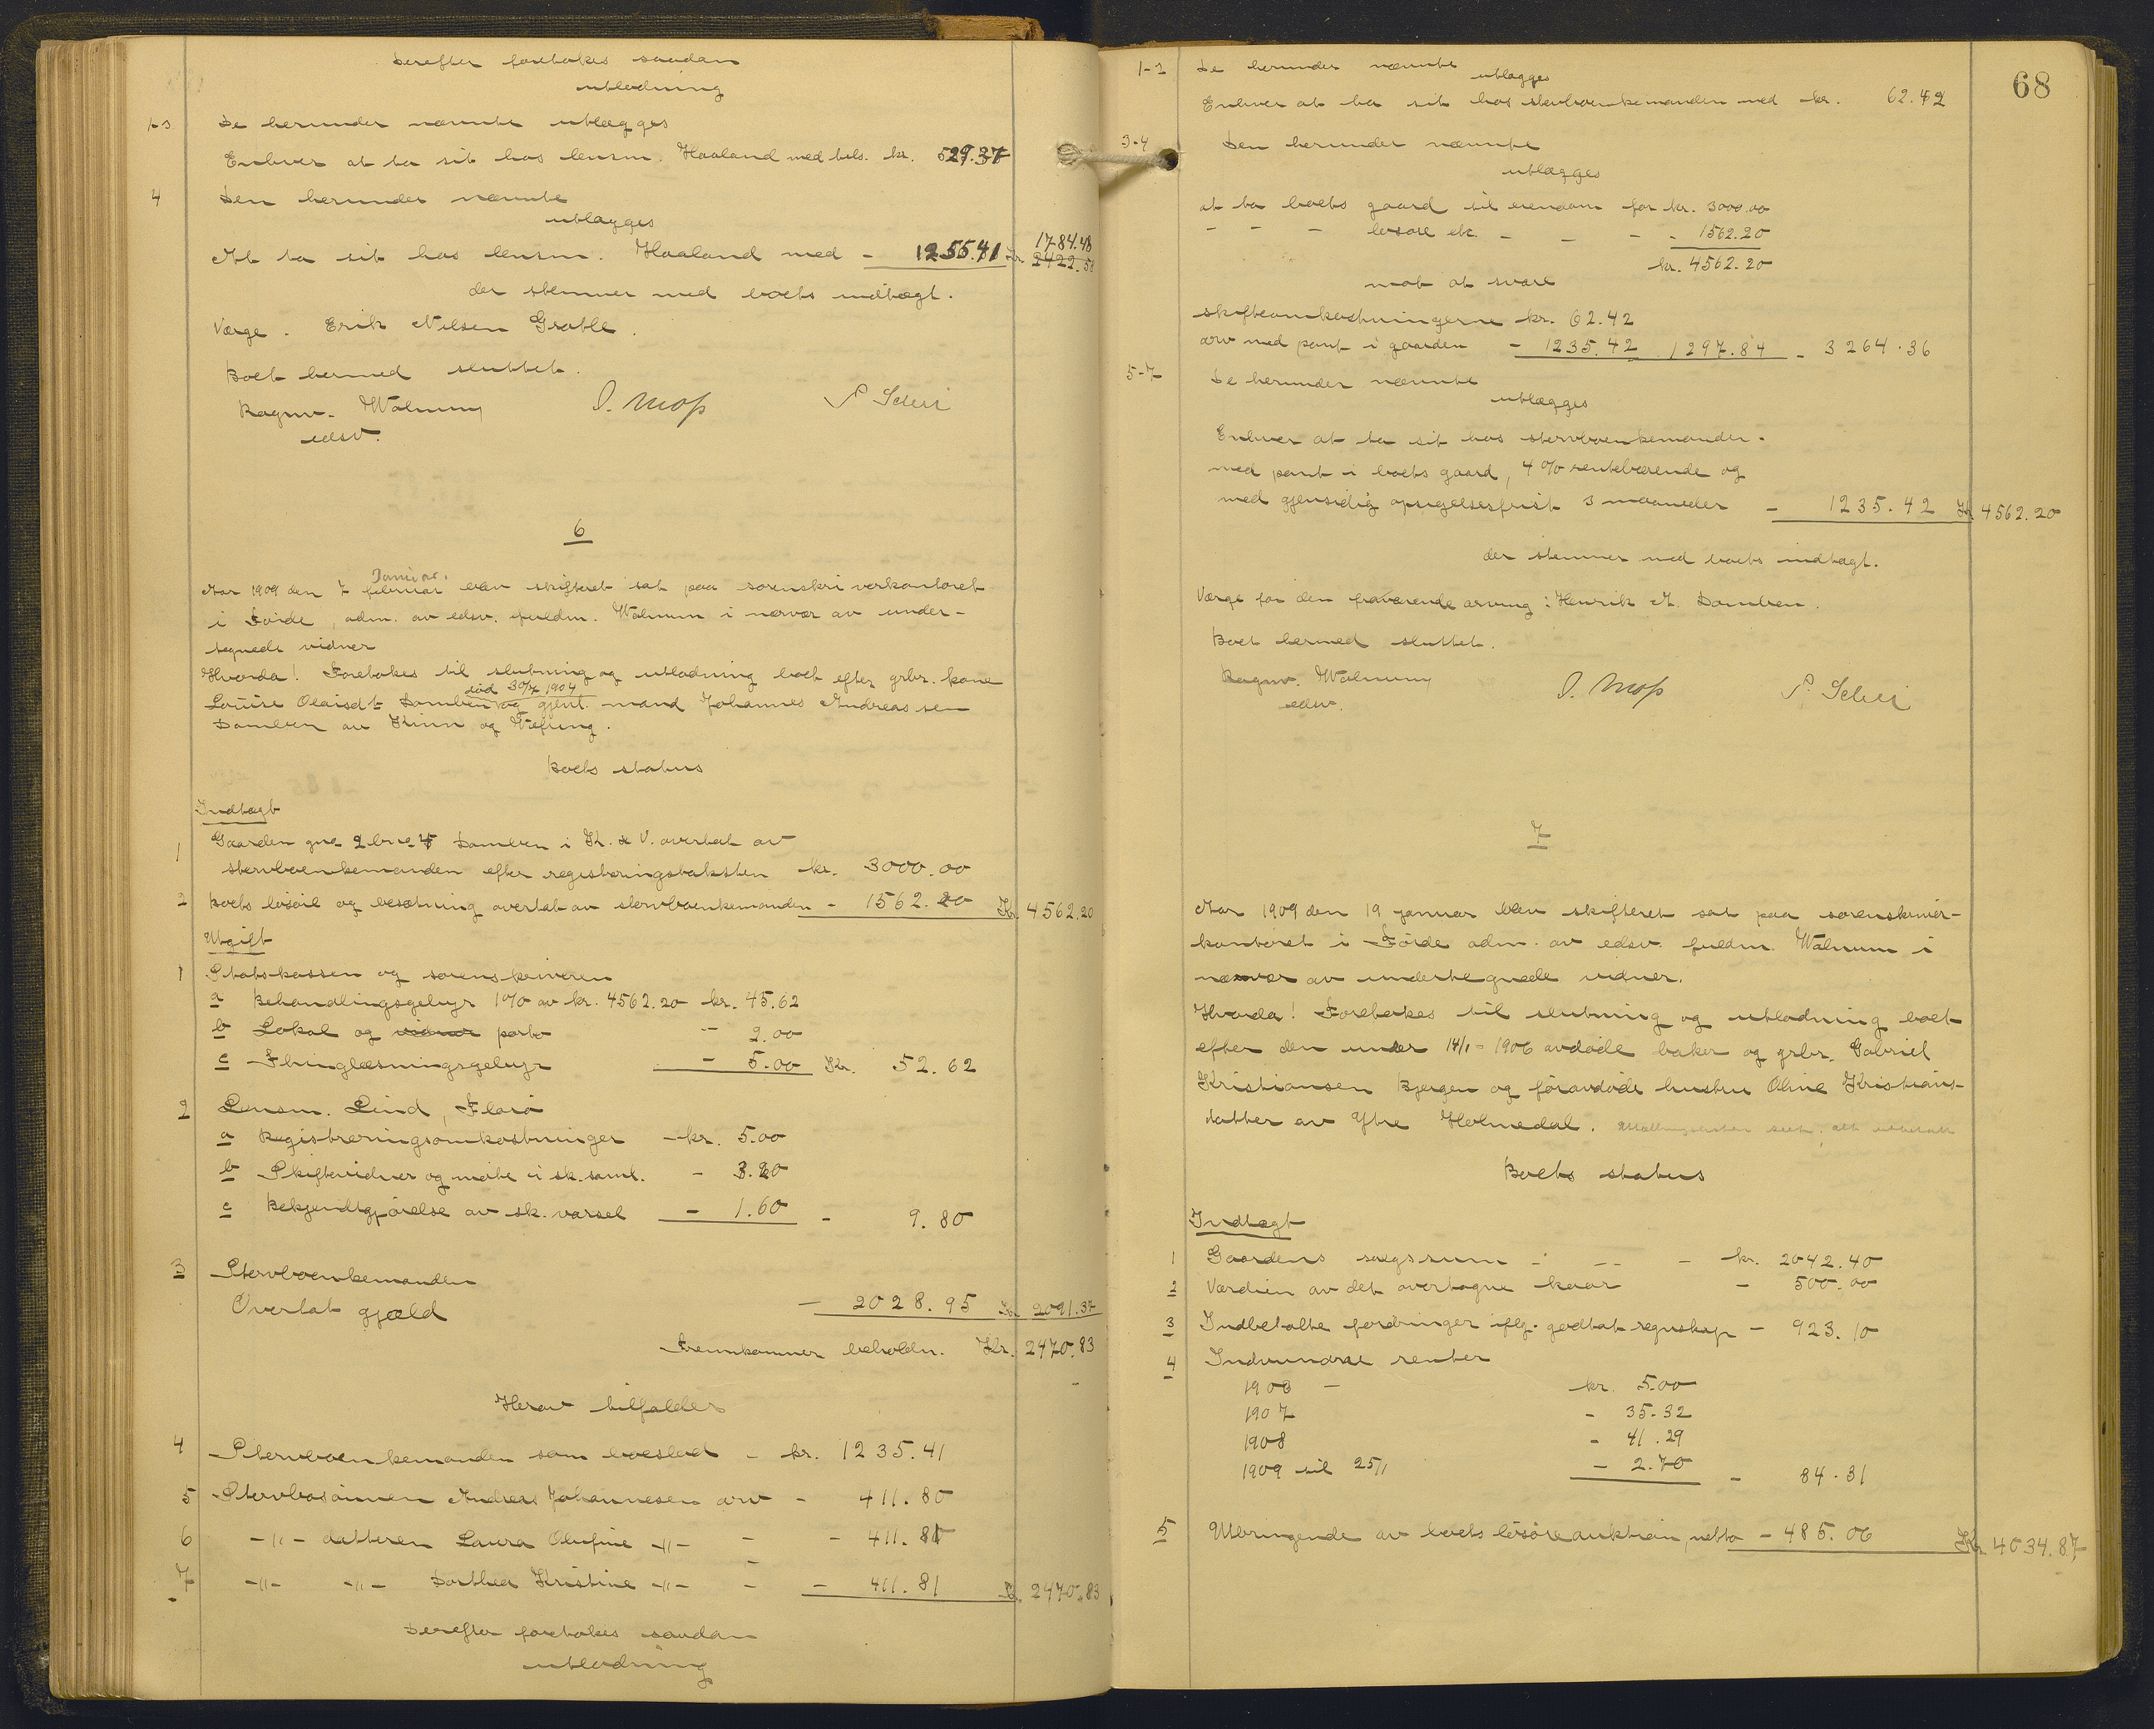 Derefter foretokes saadan
utlodning
1-3 De herunder nævnte utlægges
Enhver at ta sit hos lensm. Haaland med tils. kr. 529.37
4 Den herunder nævnte
utlægges
At ta sit hos lensm. Haaland med - 1255.41 Kr. 2422.58 1784.48
der stemmer med boets indtægt.
Værge. Erik Nilsen Grotle.
Boet hermed sluttet.
Ragnv. Walnum O. Moss S. Scheri
edsv.
6
Aar 1909 den 7 februar Januar. blev skifteret sat paa sorenskriverkontoret
i Førde, adm. av edsv. fuldm. Walnum i nærvær av under-
tegnede vidner
Hvorda! Foretokes til slutning og utlodning boet efter grbr. kone
Louise Olaisdt Domben død 30/7 1904 og gjenl. mand Johannes Andreassen
Domben av Kinn og Vefring.
Boets status
Indtægt
1 Gaarden gno 2 bno 4 Domben i K. & V. overtat av
stervboenkemanden efter registreringstaksten kr. 3000.00
2 Boets løsøre og besætning overtat av stervboenkemanden - 1562.20 Kr. 4562.20
Utgift
1 Statskassen og sorenskriveren
a Behandlingsgebyr 1% av kr. 4562.20 kr. 45.62
b Lokal og vidner porto - 2.00
c Thinglæsningsgebyr - 5.00 Kr. 52.62
2 Lensm. Lind, Florø
a Registreringsomkostninger - kr. 5.00
b Skiftevidner og møte i sk. saml. - 3.20
c Bekjendtgjørelse av sk. varsel - 1.60 - 9.80
3 Stervboenkemanden
Overtat gjæld - 2028.95 Kr. 2091.37
Fremkommer beholdn. Kr. 2470.83
Herav tilfalder
4 Stervboenkemanden som boeslod - kr. 1235.41
5 Stervbosønnen Andreas Johannesen arv - 411.80
6 -"- datteren Laura Olufine -"- - - 411.81
7 -"- -"- Dorthea Kristine -"- - - 411.81 Kr. 2470.83
Derefter foretokes saadan
utlodning
68
1-2 De herunder nævnte
utlægges
Enhver at ta sit hos stervboenkemanden med kr. 62.42
3-4 Den herunder nævnte
utlægges
at ta boets gaard til eiendom for kr. 3000.00
- - - løsøre etc. - - - - 1562.20
kr. 4562.20
mot at svare
skifteomkostningerne kr. 62.42
arv med pant i gaarden - 1235.42 1297.84 - 3264.36
5-7 De herunder nævnte
utlægges
Enhver at ta sit hos stervboenkemanden.
med pant i boets gaard, 4% rentebærende og
med gjensidig opsigelsesfrist 3 maaneder - 1235.42 Kr. 4562.20
der stemmer med boets indtægt.
Værge for den fraværende arving: Henrik A. Domben.
Boet hermed sluttet.
Ragnv. Walnum O. Moss S. Scheri
edsv.
7
Aar 1909 den 19 januar blev skifteret sat paa sorenskriver-
kontoret i Førde adm. av edsv. fuldm. Walnum i
nærvær av undertegnede vidner.
Hvorda! Foretokes til slutning og utlodning boet
efter den under 14/1 - 1906 avdøde baker og grbr. Gabriel
Kristiansen Bjergen og føravdøde hustru Oline Kristians-
datter av Ytre Holmedal.
Boets status
Indtægt
1 Gaardens salgssum - - - kr. 2042.40
2 Værdien av det overtagne kaar - 500.00
3 Indbetalte fordringer iflg. godtat regnskap - 923.10
4 Indvundne renter
1903 - kr. 5.00
1907 - 35.32
1908 - 41.29
1909 til 25/1 - 2.70 - 84.31
5 Utbringende av boets løsøreauktion, netto - 485.06 Kr. 4034.87